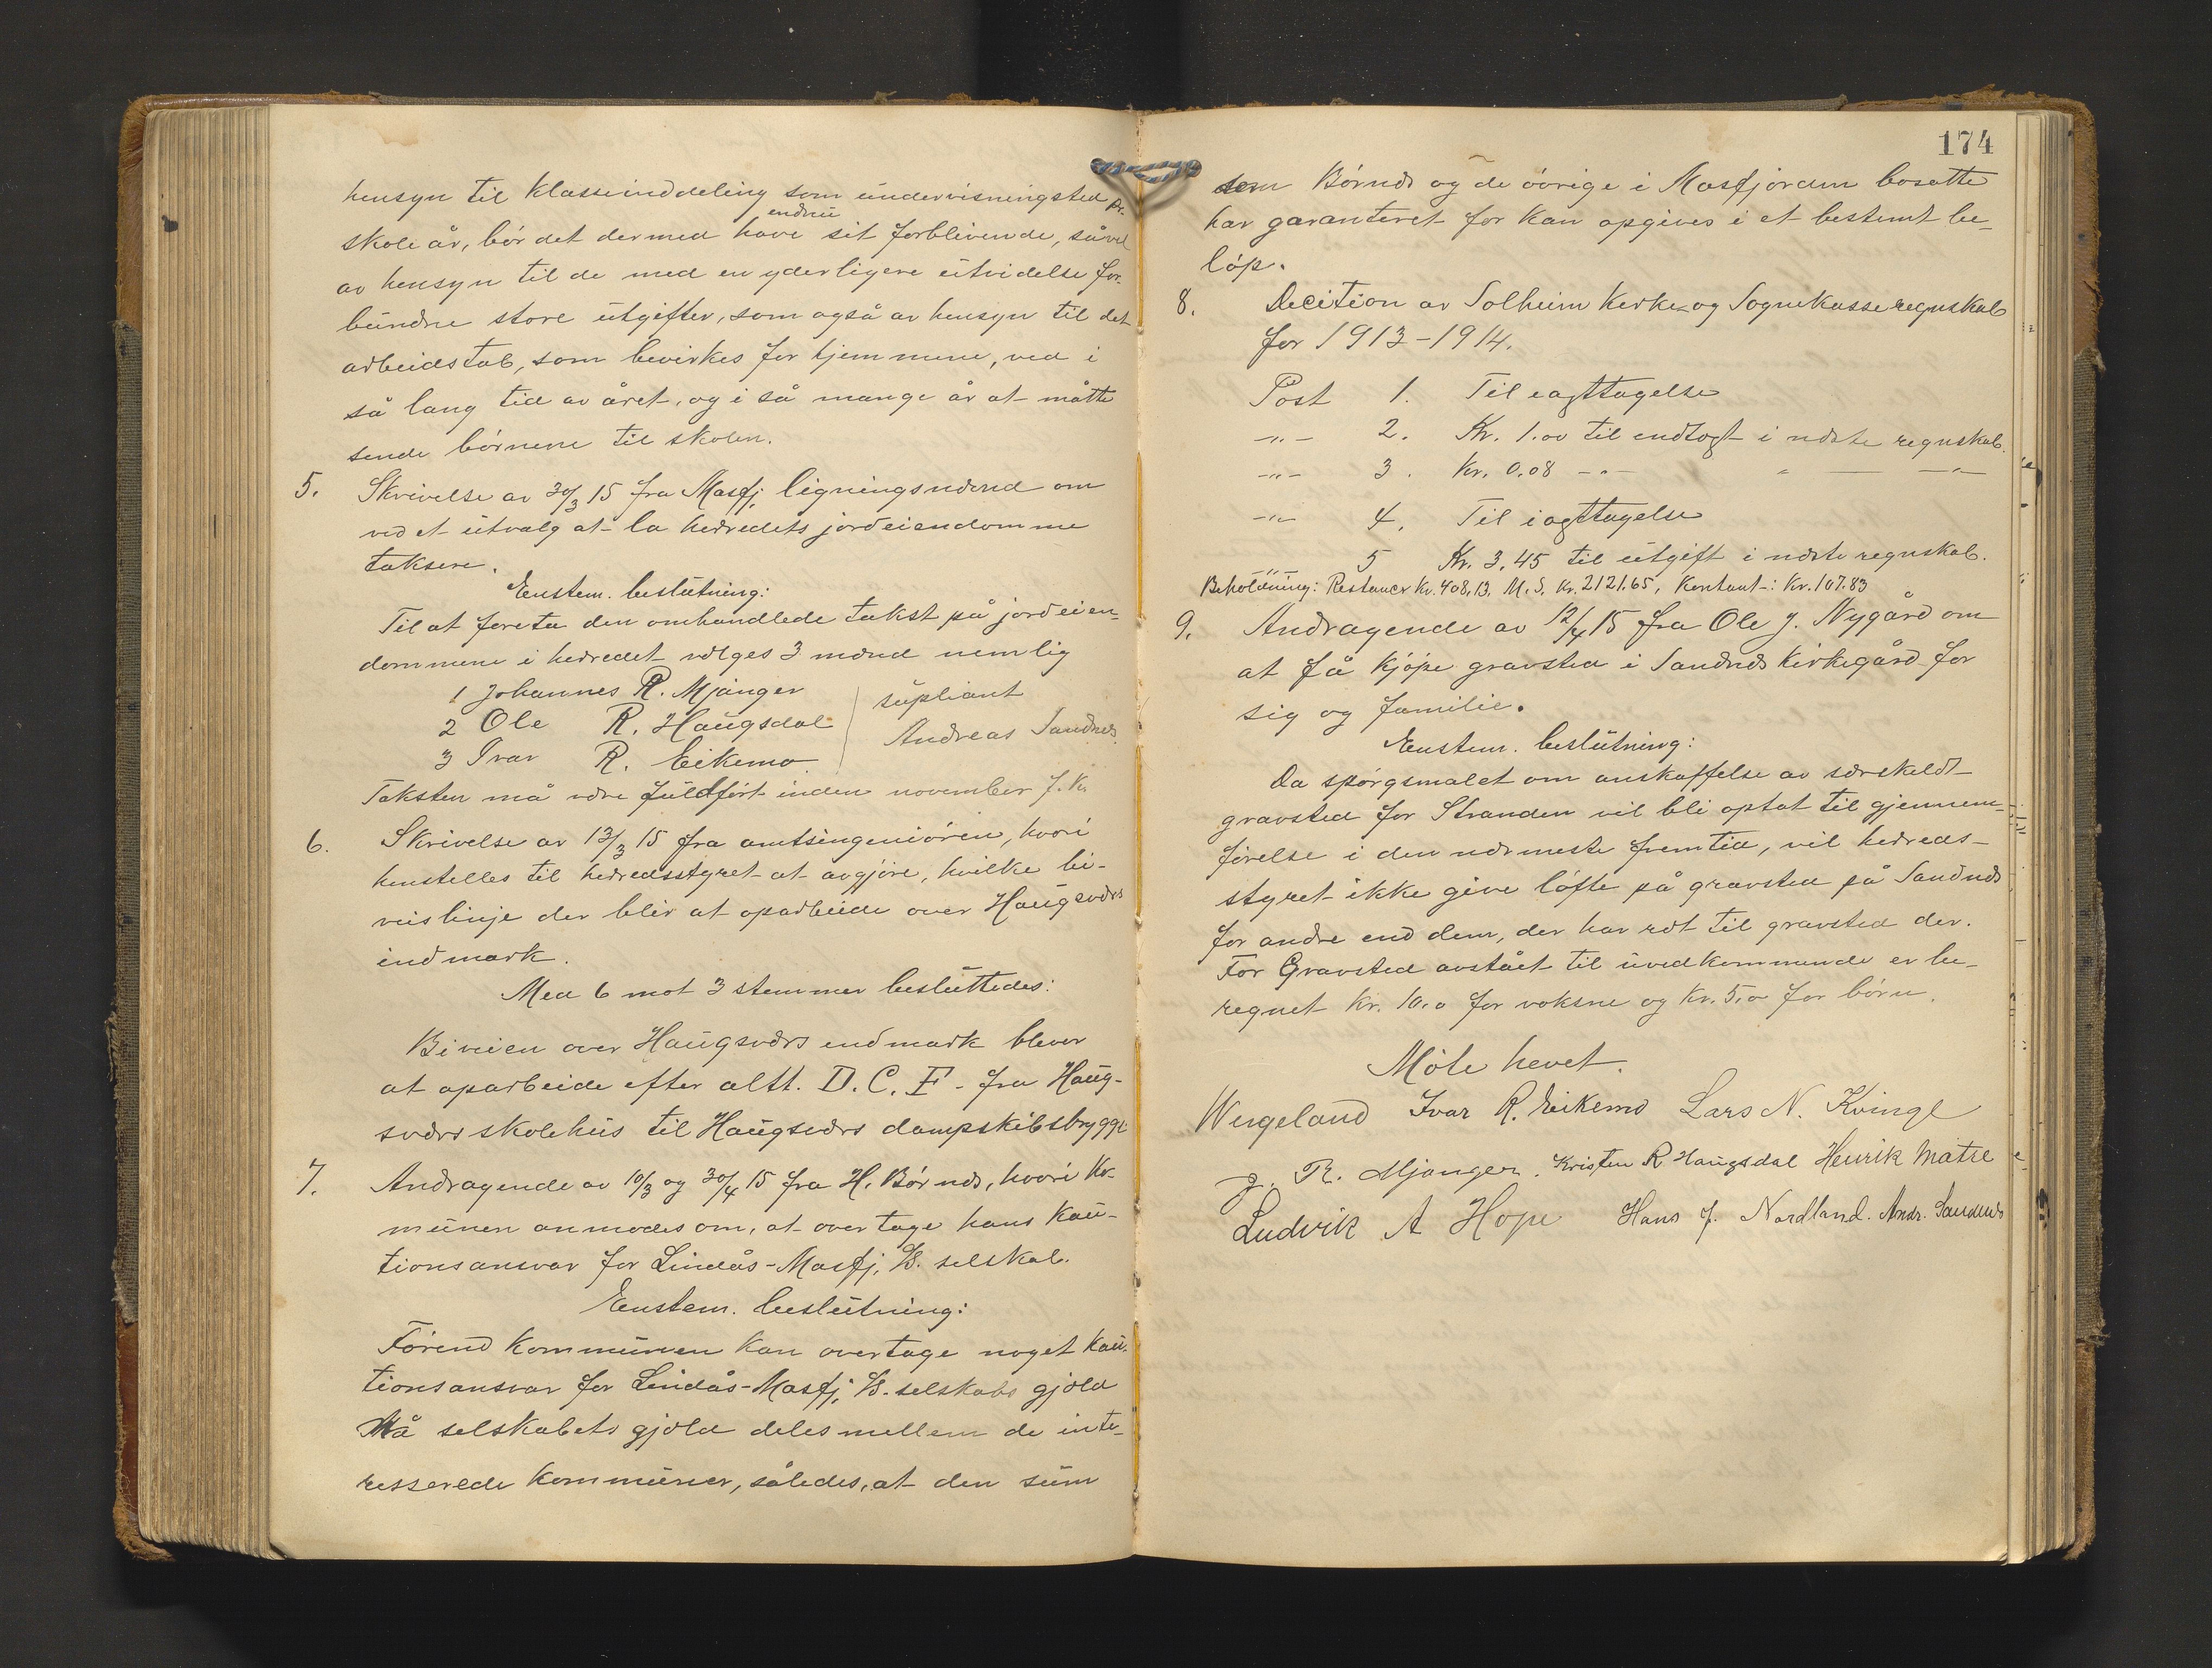 hensyn til klasseinddeling som undervisningsted pr.
skoleår, bør det dermed have endnu sit forblivende, såvel
av hensyn til de med en yderligere utvidelse for-
bundne store utgifter, som også av hensyn til det
arbeidstab, som bevirkes for hjemmene, ved i
så lang tid av året, og i så mange år at måtte
sende børnene til skolen.
5. Skrivelse av 30/3 15 fra Masfj. ligningsnævnd om
ved et utvalg at la herredets jordeiendomme
taksere.
Enstem. beslutning:
Til at foreta den omhandlede takst på jordeien-
dommene i herredet vælges 3 mænd nemlig
1 Johannes R. Mjanger
2 Ole R. Haugsdal
3 Ivar R. Eikemo
supliant
Andreas Sandnes
Taksten må være fuldført inden november f. k.
6. Skrivelse av 13/3 15 fra amtsingeniøren, hvori
henstelles til herredsstyret at avgjøre, hvilke bi-
veislinje der blir at oparbeide over Haugsværs
indmark.
Med 6 mot 3 stemmer besluttedes:
Biveien over Haugsværs indmark blever
at oparbeide efter altt. D. C. F - fra Haug-
sværs skolehus til Haugsværs dampskibsbrygge
7. Andragende av 10/3 og 30/4 15 fra H. Børnæs, hvori Ko-
munen anmodes om, at overtage hans kau-
tionsansvar for Lindås-Masfj. D/S. selskab.
Enstem. beslutning:
Førend kommunen kan overtage noget kau-
tionsansvar for Lindås-Masfj. D/S. selskabs gjæld
Må selskabets gjæld deles mellem de inte-
resserede kommuner, således, at den sum
174
som Børnæs og de øvrige i Masfjorden bosatte
har garanteret for kan opgives i et bestemt be-
løp.
8. Decition av Solheim Kirke og Sognekasseregnskab
for 1913-1914.
Post 1. Til iagttagelse
-"- 2. Kr. 1.00 til indtægt i næste regnskab.
-"- 3. Kr. 0.08 -"- " -"-
-"- 4. Til iagttagelse
-"- 5 Kr. 3.45 til utgift i næste regnskab.
Beholdning: Restancer Kr. 408,13. M. S. Kr. 2121.65, Kontant: Kr. 107.83
9. Andragende av 12/4 15 fra Ole J. Nygård om
at få kjøpe gravsted i Sandnes kirkegård for
sig og familie.
Enstem. beslutning:
Da spørgsmålet om anskaffelse av særskildt
gravsted for Stranden vil bli optat til gjennem-
førelse i den nærmeste fremtid, vil herreds-
styret ikke give løfte på gravsted på Sandnes
for andre end dem, der har ret til gravsted der.
For Gravsted avstået til uvedkommende er be-
regnet kr. 10.0 for voksne og kr. 5.0 for børn.
Møte hevet.
Wergeland Ivar R. Eikemo Lars N. Kvinge
J. R. Mjanger. Kristen R Haugsdal Henrik Matre
Ludvik A Hope Hans J. Nordland. Andr. Sandnes